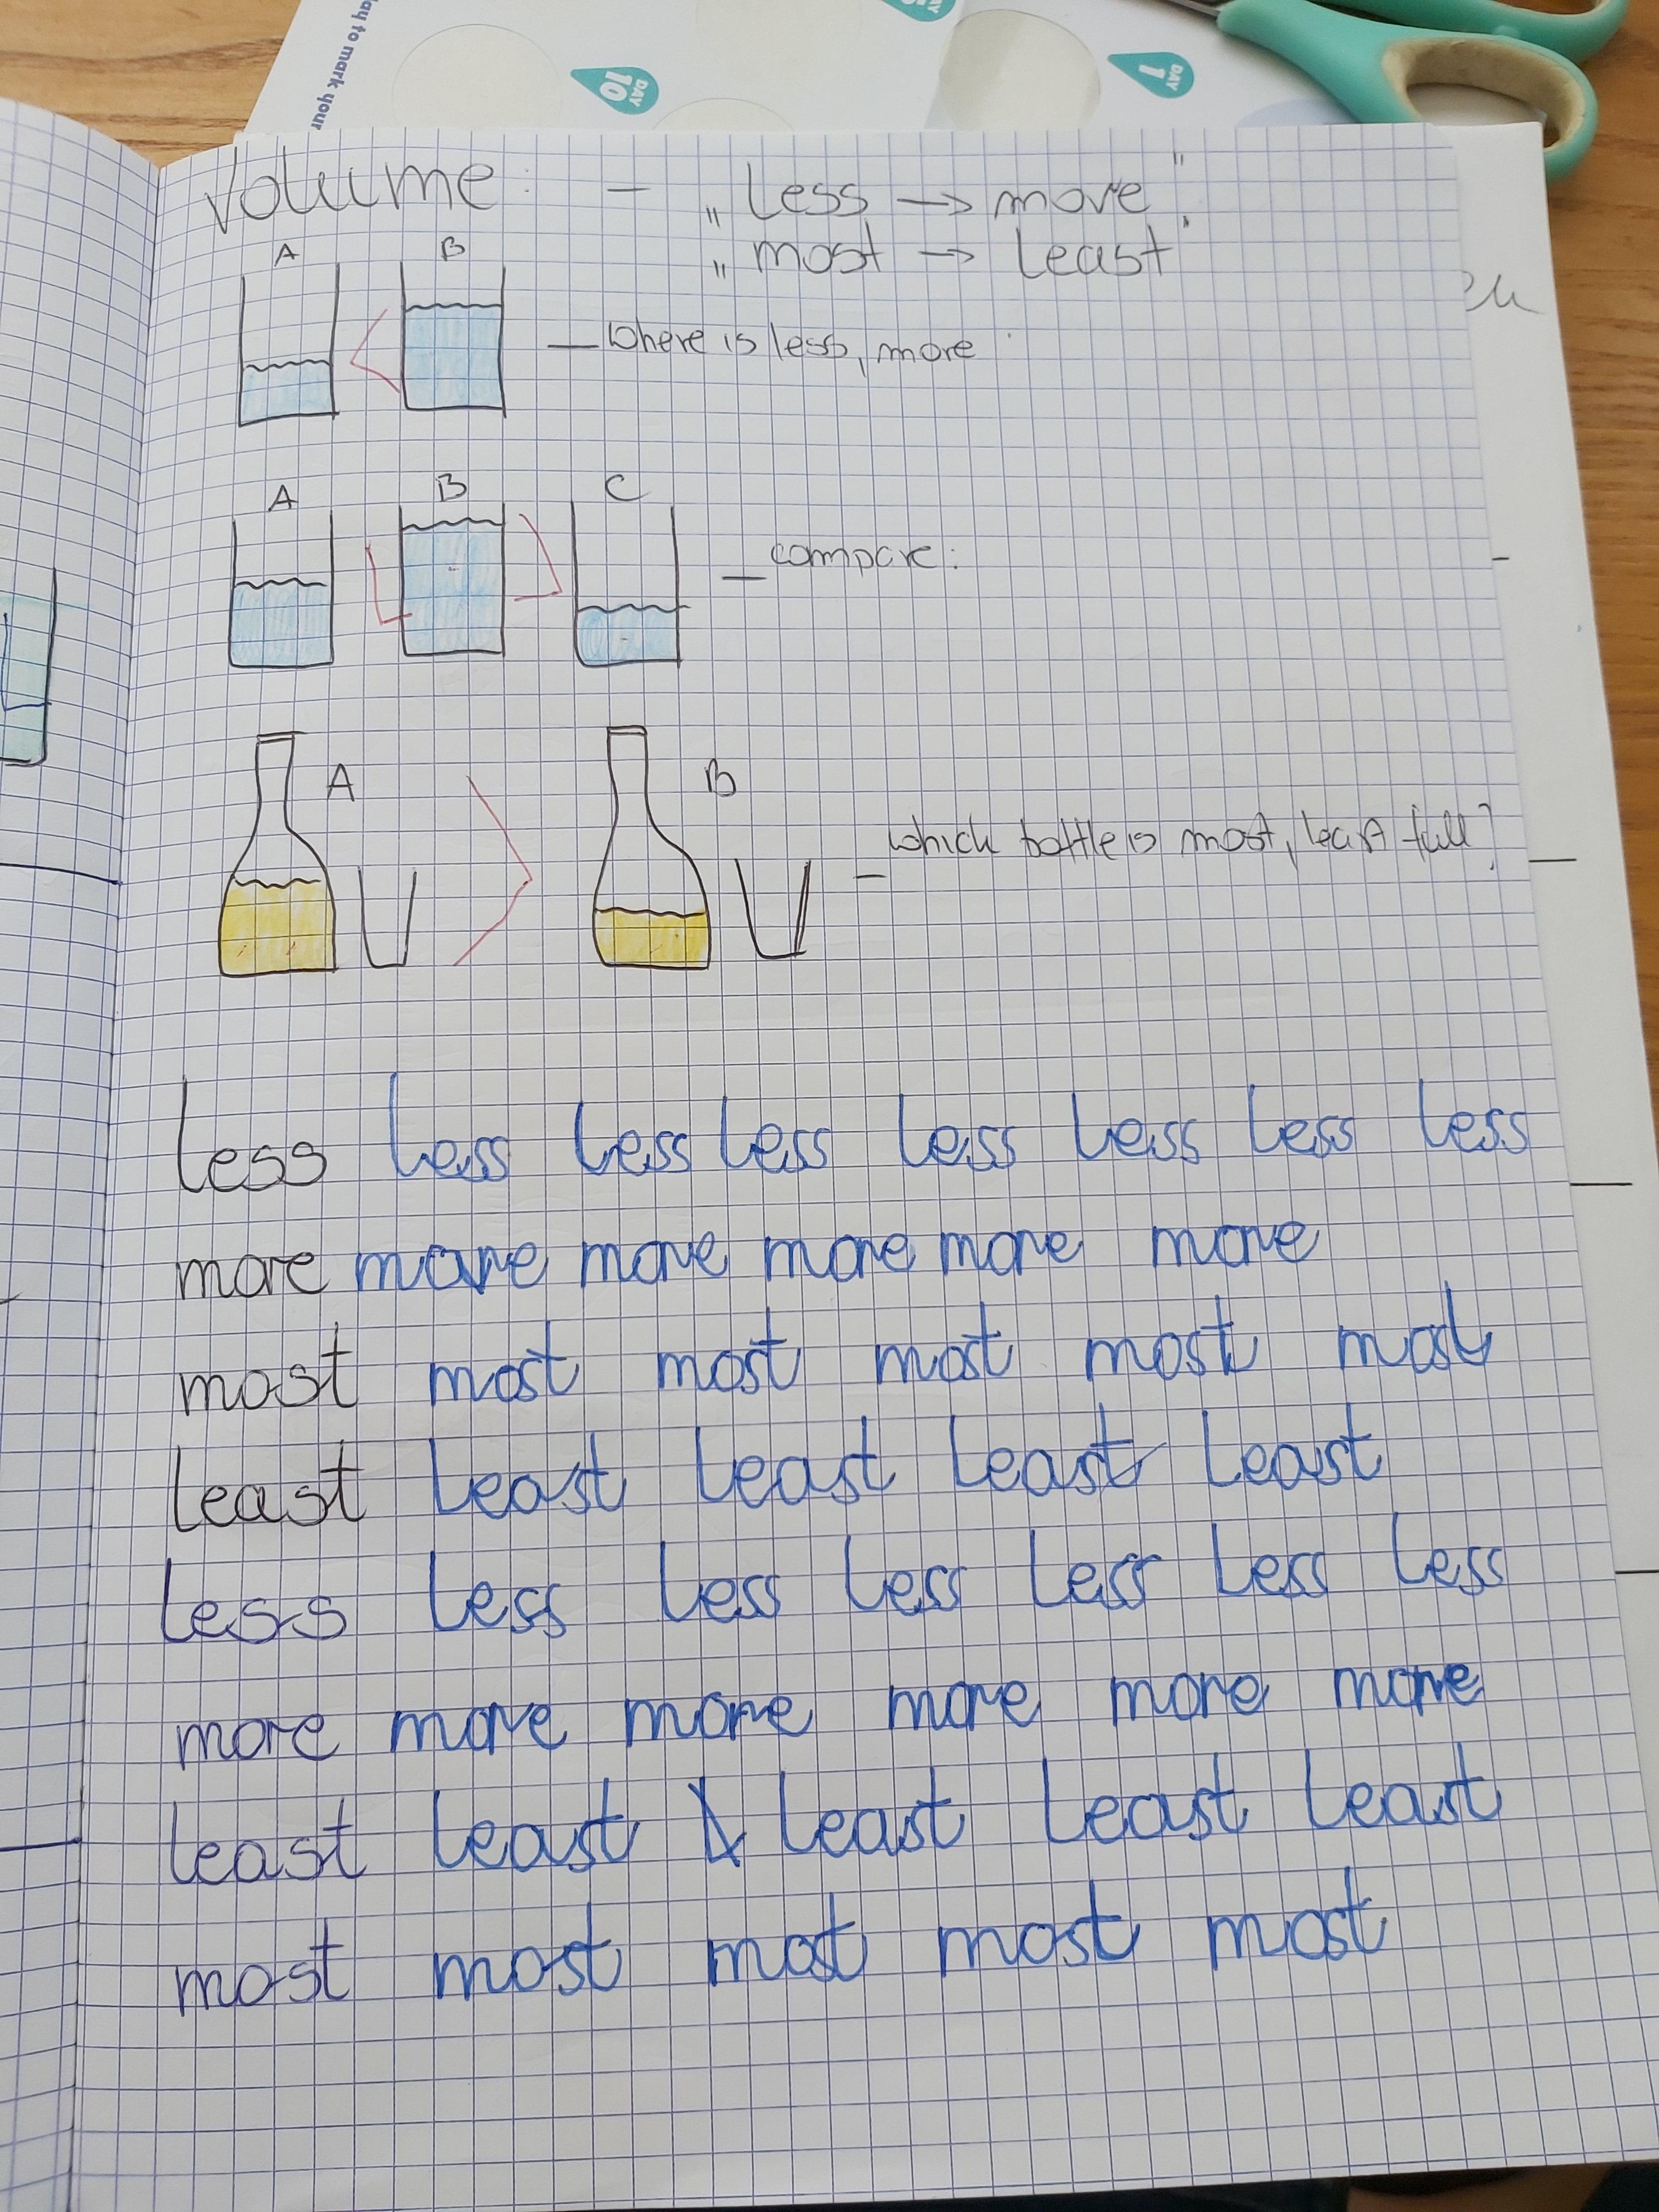 day to mark your
DAY 10
DAY 1
Volume: – „Less → more"
„most → least"
A B
— Where is less, more
A B C
— compare:
A B
– which bottle is most, least full?
less less less less less less less less
more more more more more more
most most most most most most
least least least least least
less less less less less less less
more more more more more more
least least least least least
most most most most most